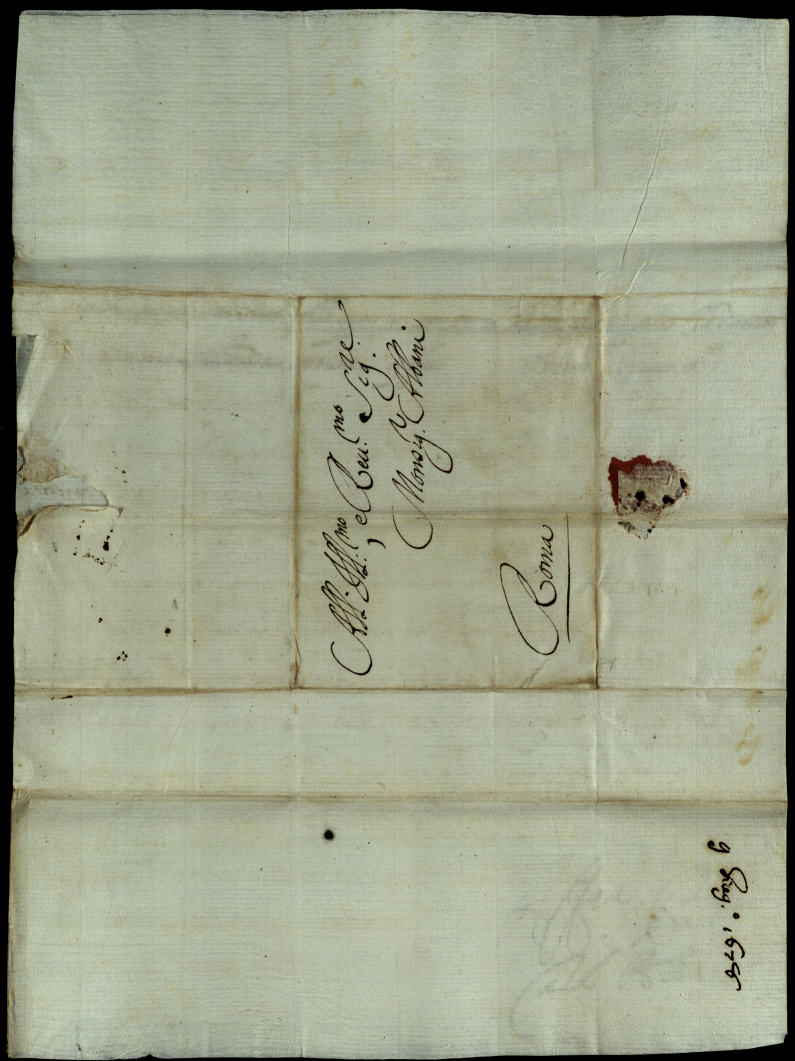 All' Ill.mo e Reu.mo Sig.re
Monsig.r Albani
Roma
9 Giug.o 1678